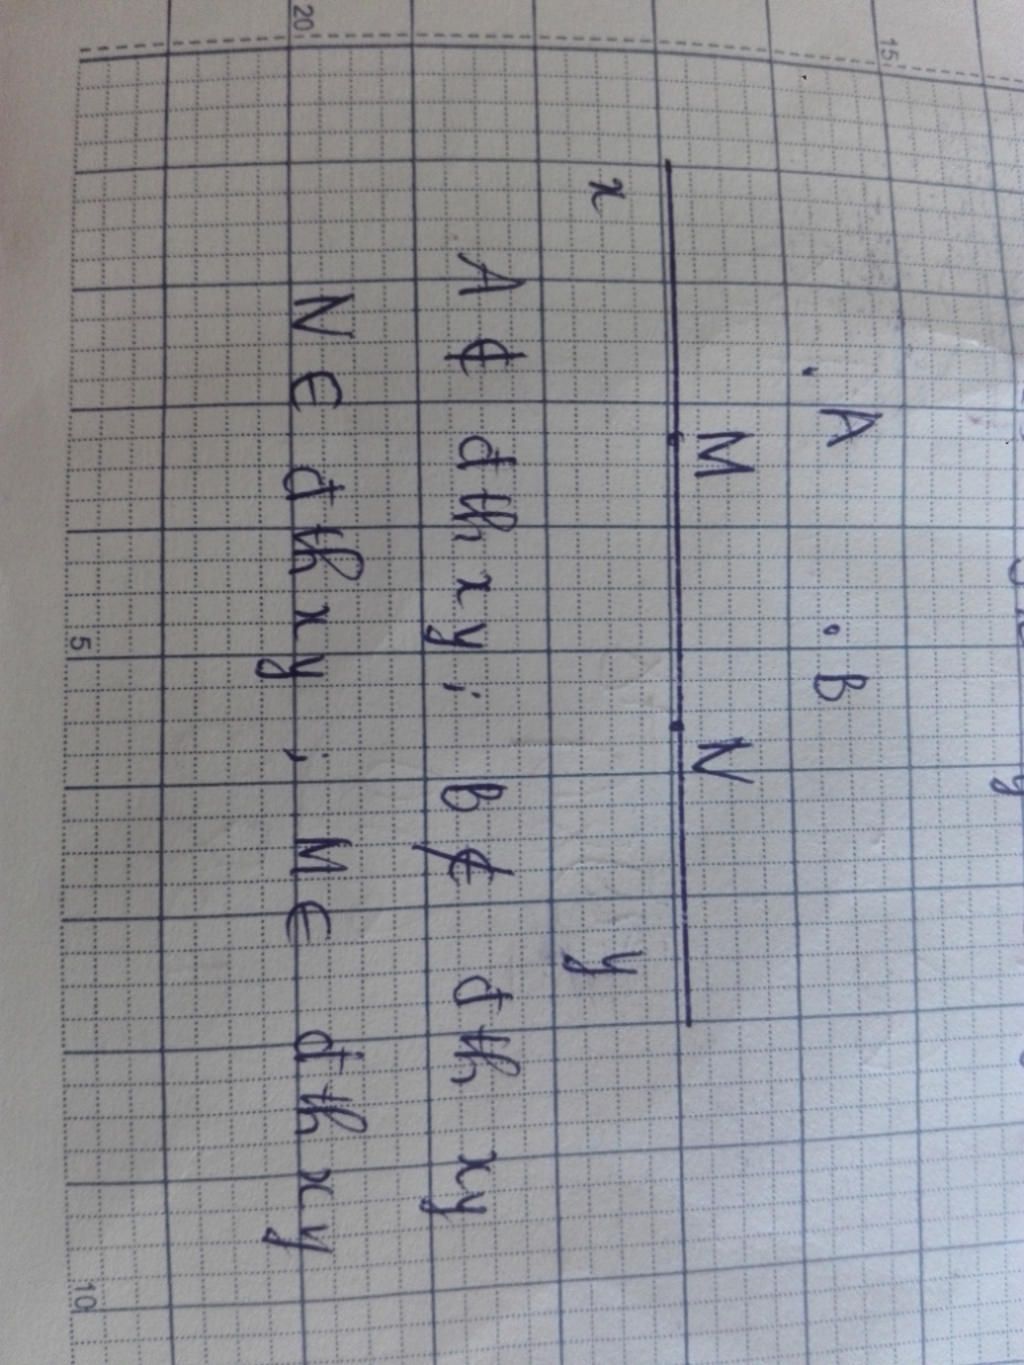 A
B
M
N
x
y
A ∉ đth xy; B ∉ đth xy
N ∈ đth xy; M ∈ đth xy
15
20
5
10